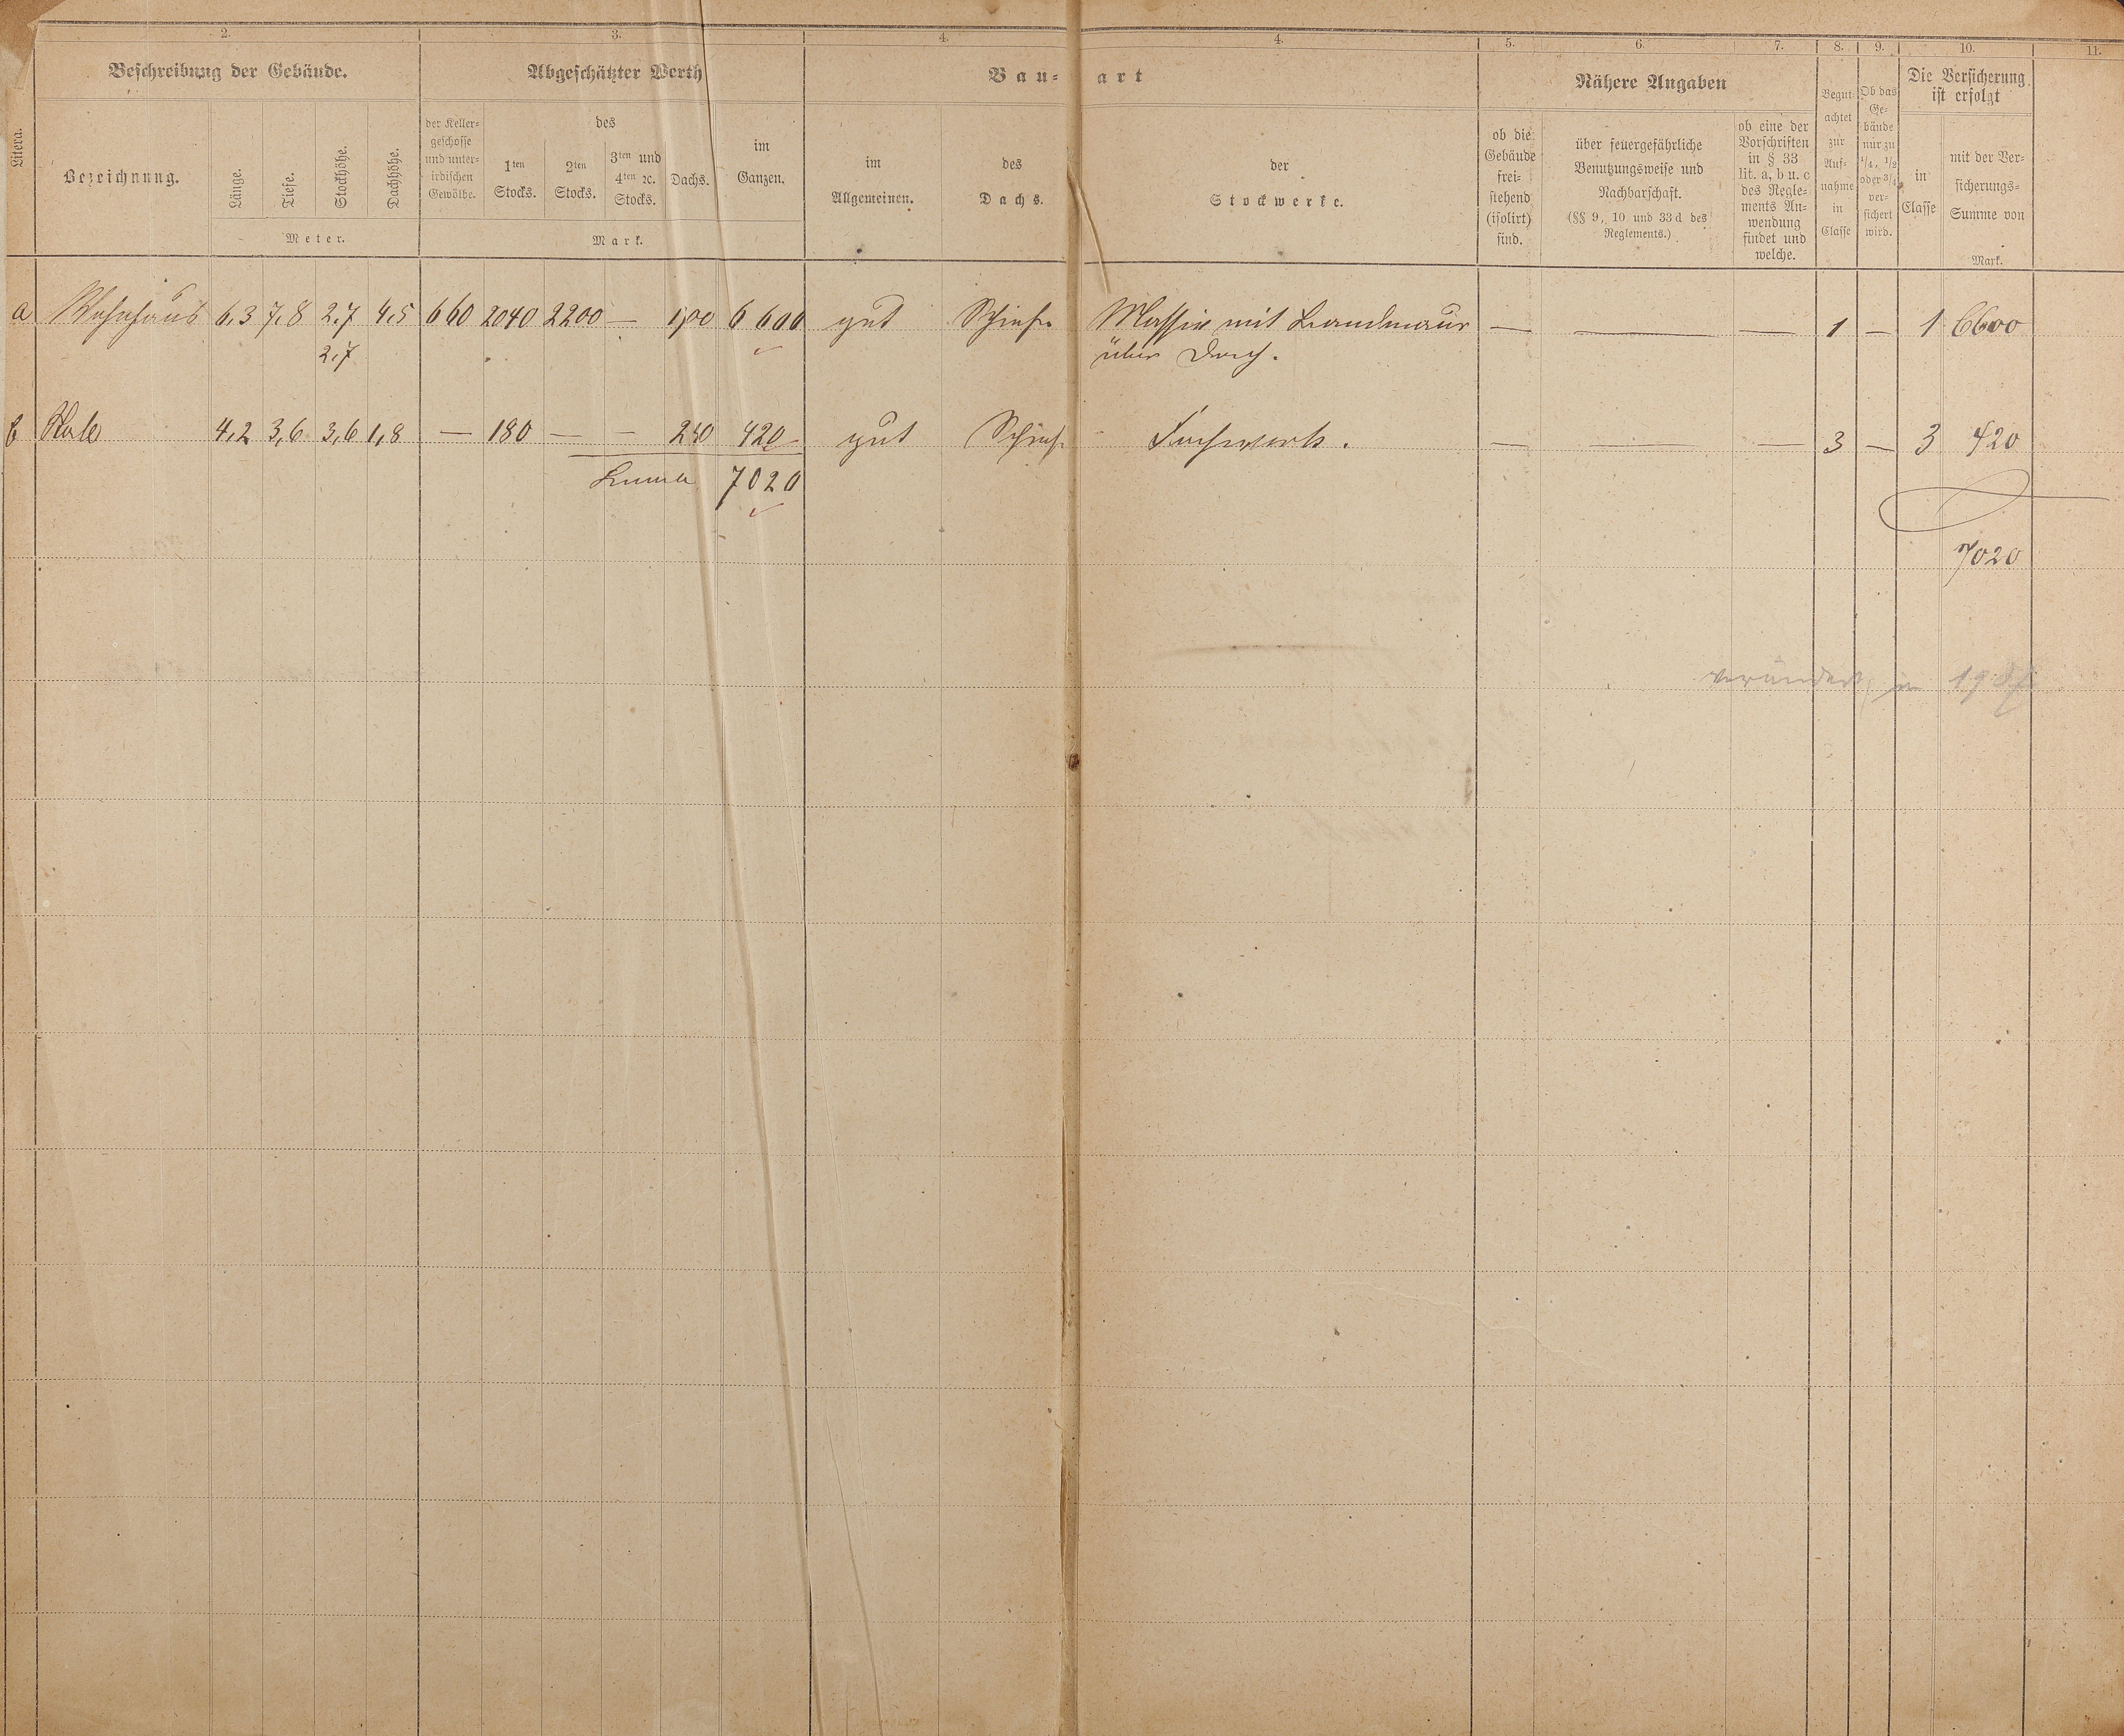 2. 3. 4. 4. 5. 6. 7. 8. 9. 10. 11.
Litera.
Beschreibung der Gebäude.
Bezeichnung.
Länge. Tiefe. Stockhöhe. Dachhöhe.
Meter.
Abgeschätzter Werth
der Keller-
geschosse
und unter-
irdischen
Gewölbe.
des
1ten
Stocks.
2ten
Stocks.
3ten und
4ten ꝛc.
Stocks.
Dachs.
im
Ganzen.
Mark.
Bau- art
im
Allgemeinen.
des
Dachs.
der
Stockwerke.
Nähere Angaben
ob die
Gebäude
frei-
stehend
(isolirt)
sind.
über feuergefährliche
Benutzungsweise und
Nachbarschaft.
(§§ 9, 10 und 33 d des
Reglements.)
ob eine der
Vorschriften
in § 33
lit. a, b u. c
des Regle-
ments An-
wendung
findet und
welche.
Begut-
achtet
zur
Auf-
nahme
in
Classe
Ob das
Ge-
bäude
nur zu
1/4, 1/2
oder 3/4
ver-
sichert
wird.
Die Versicherung
ist erfolgt
in
Classe
mit der Ver-
sicherungs-
Summe von
Mark.
a Wohnhaus 6,3 7,8 2,7 4,5 660 2040 2200 — 1700 6600 gut Schiefer Massiv mit Brandmauer — — — 1 — 1 6600
2,7 über Dach.
b Stall 4,2 3,6 3,6 1,8 — 180 — — 240 420 gut Schief. Fachwerk. — — — 3 — 3 420
Summa 7020
7020
verändert in